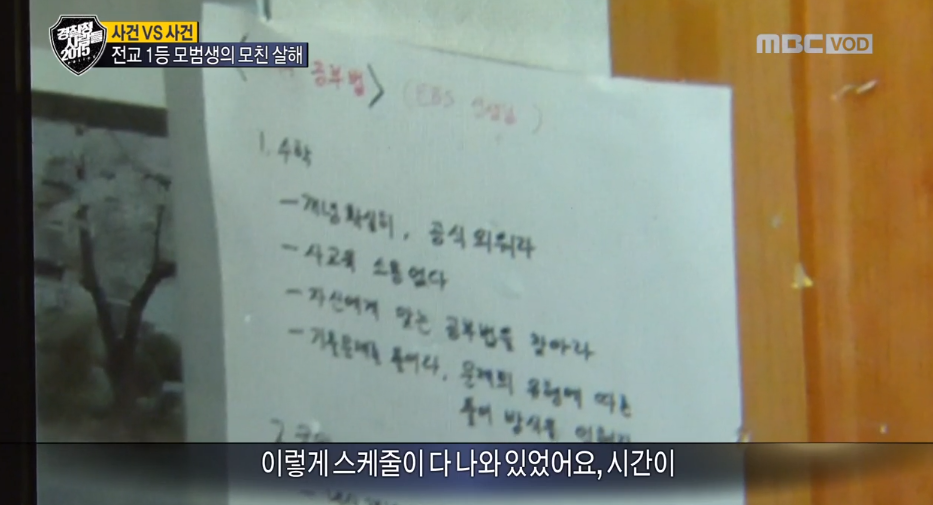 경찰청
사람들
2015
사건 VS 사건
전교 1등 모범생의 모친 살해
MBC VOD
공부법>
(EBS 선생님)
1. 수학
- 개념확실히, 공식 외워라
- 사교육 소용없다
- 자신에게 맞는 공부법을 찾아라
- 기출문제를 풀어라, 문제의 유형에 따른
풀이 방식을
이렇게 스케줄이 다 나와 있었어요, 시간이